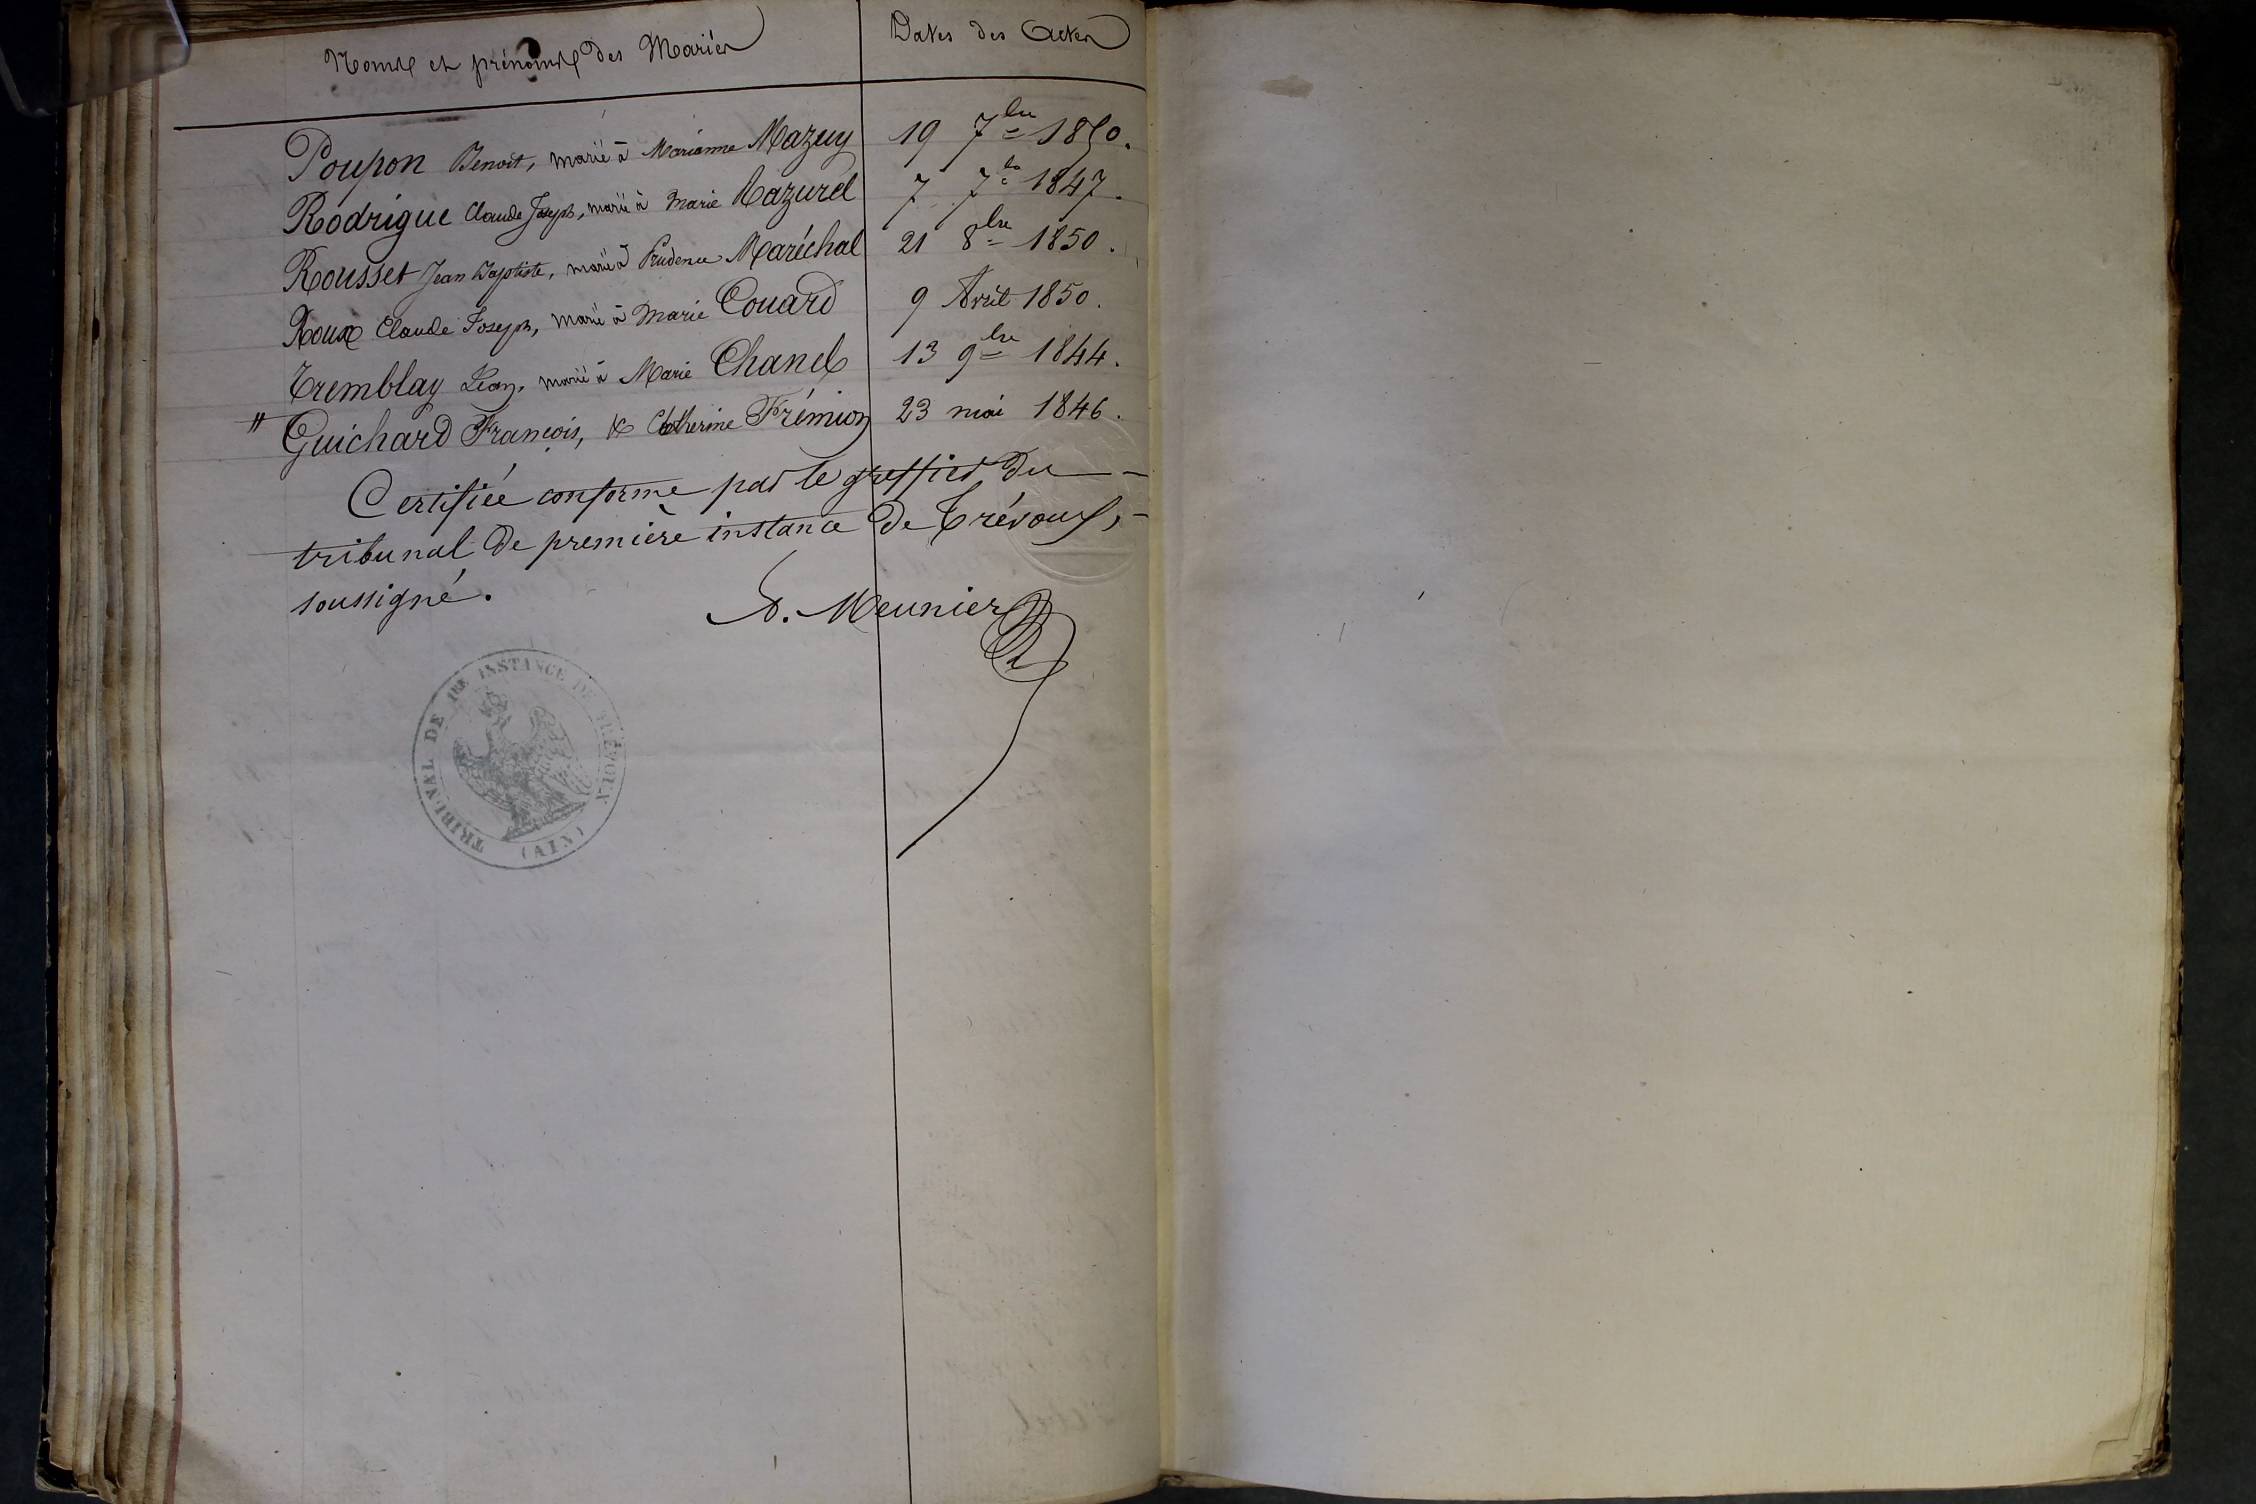 Noms et prénoms des Mariés Dates des Actes
Poupon Benoit, marié à Marianne Mazuy 19 7bre 1850.
Rodrigue Claude Joseph, marié à Marie Mazurel 7 7bre 1847.
Rousset Jean Baptiste, marié à Prudence Maréchal 21 8bre 1850.
Roux Claude Joseph, marié à Marie Couard 9 Avril 1850.
Tremblay Jean, marié à Marie Chanel 13 9bre 1844.
" Guichard François, & Catherine Frémion 23 mai 1846.
Certifiée conforme par le greffier du
tribunal de première instance de Trévoux,
soussigné.
A. Meunier
TRIBUNAL DE 1RE INSTANCE DE TRÉVOUX
(AIN)